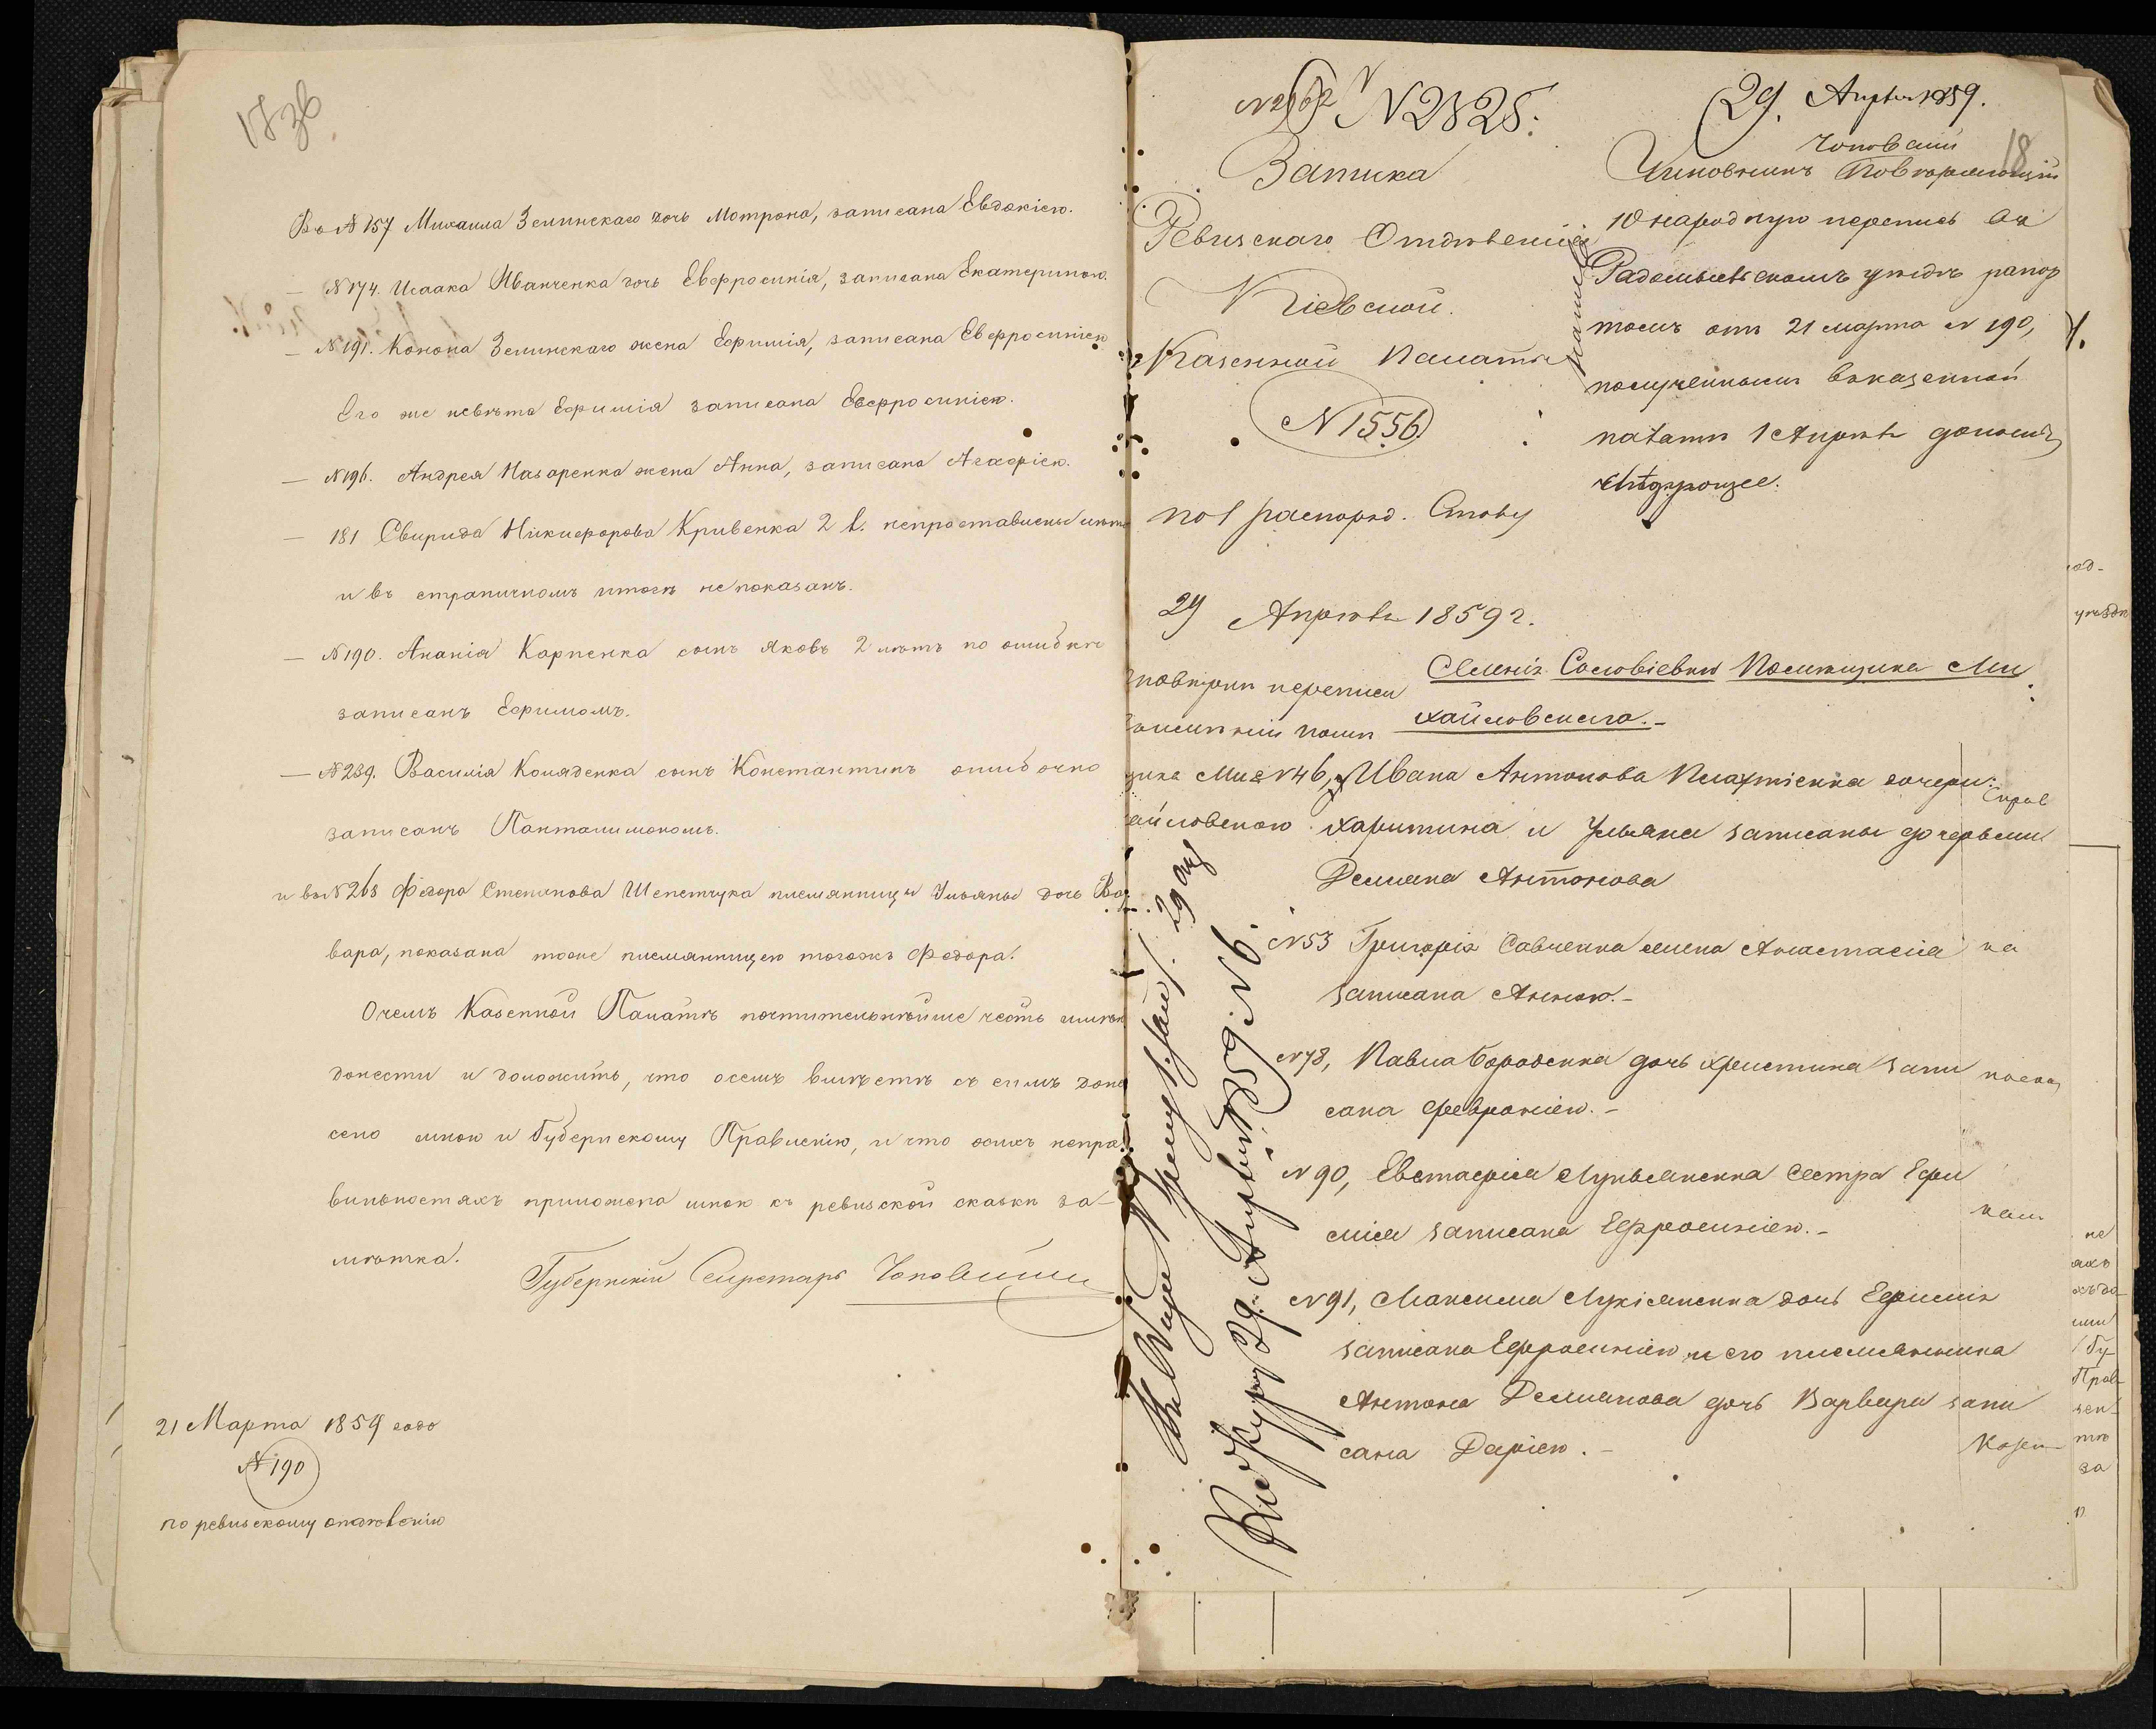 1836
Въ № 157 Михаила Зелинскаго дочь Мотрона, записана Евдокіею.
— № 174. Исаака Иванченка дочь Евфросинія, записана Екатериною.
— № 191. Конона Зелинскаго жена Ефимія, записана Евфросиніею
Его же невѣста Ефимія записана Евфросиніею.
— № 196. Андрея Назаренка жена Анна, записана Агафіею.
— 181 Свирида Никифорова Кривенка 2 л. непроставлены лѣта
и въ страничномъ итогѣ не показанъ.
— № 190. Ананія Карпенка сынъ Яковъ 2 лѣтъ по ошибкѣ
записанъ Ефимомъ.
— № 239. Василія Коляденка сынъ Константинъ ошибочно
записанъ Пантелимономъ.
и въ № 263 Федора Степанова Шепетчука племянницы Ульяны дочь Вар
вара, показана тоже племянницею тогожъ Федора.
О чемъ Казенной Палатѣ почтительнѣйше честь имѣю
донести и доложить, что о семъ вмѣстѣ съ симъ доне
сено мною и Губернскому Правленію, и что о сихъ непра
вильностяхъ приложена мною къ ревизской сказкѣ за-
мѣтка.
Губернскій Секретарь Чоповскій
21 Марта 1859 года
№ 190
по ревизскому отдѣленію
№ 2325.
29 Апрѣля 1859.
18
Записка
Ревизскаго Отдѣленія
Кіевской
Казенной Палаты
№ 1556
по 1 распоряд. Столу
29 Апрѣля 1859 г.
Чоповскій
Чиновникъ повѣряющій
10 народную перепись въ
Радомысльскомъ уѣздѣ рапор
томъ отъ 21 марта № 190,
полученнымъ въ казенной
палатѣ 1 Апрѣля доноситъ
слѣдующее:
повѣрки переписи
имѣній помѣ
щика Ми
хайловскаго
Селенія Соловіевки Помѣщика Ми
хайловскаго.-
№ 46, Ивана Антонова Плахтіенка дочери:
Харитина и Ульяна записаны дочерьми
Демьяна Антонова
№ 53 Григорія Савченка жена Анастасія
записана Анною.-
№ 78, Павла Бороденка дочь Христина запи
сана Февроніею.-
№ 90, Евстафія Лукьяненка сестра Ефи
мія записана Ефросиніею.-
№ 91, Максима Лукіяненка дочь Ефимія
записана Ефросиніею, и его племянника
Антона Демьянова дочь Варвара запи
сана Даріею.-
Справ
ка
Казен
29 Апрѣля 1859 № 6.
уѣздѣ
не
Бу
Прав
за